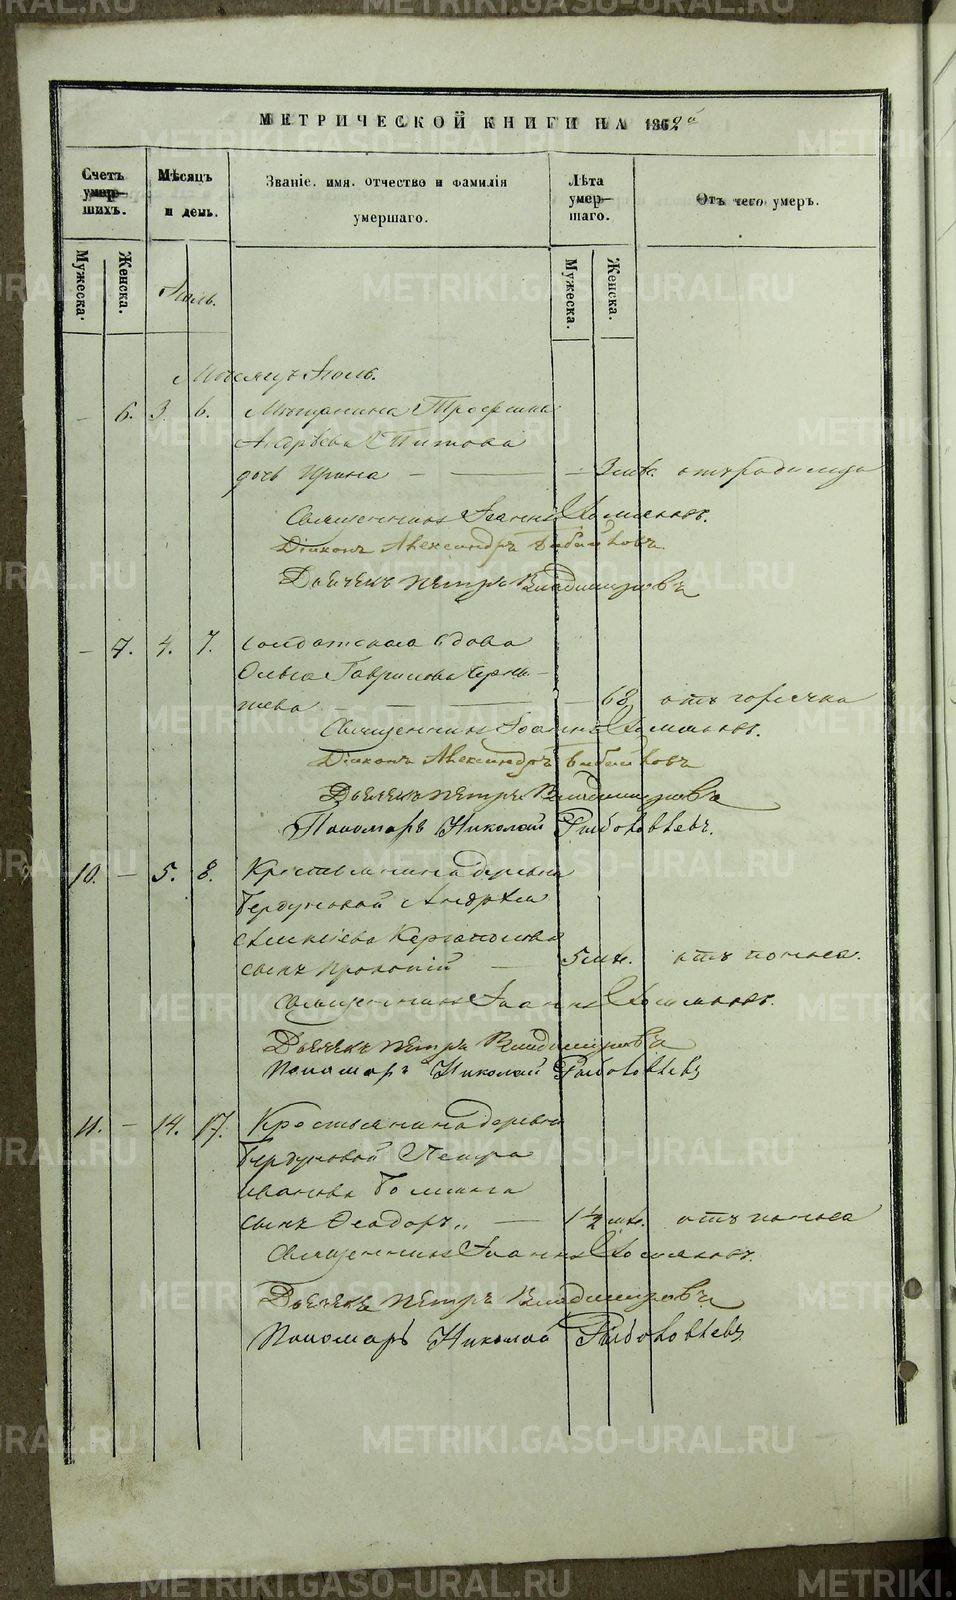 МЕТРИЧЕСКОЙ КНИГИ НА 1862 а
Счетъ умер-шихъ.
Мѣсяцъ и день.
Званіе. имя. отчество и фамилія умершаго.
Лѣта умер-шаго.
Отъ чего умеръ.
Мужеска.
Женска.
Июль.
Мужеска.
Женска.
Мѣсяцъ Июль.
— 6. 3. 6. Мѣщанина Трофима
Андрѣева Титова
дочь Ирина — — — 3 мѣс. отъ родимца
Священникъ Іоаннъ Хомяковъ.
Діаконъ Александръ Бибиковъ.
Дьячекъ Петръ Владимировъ
— 7. 4. 7. Солдатская вдова
Ольга Гаврилова Черны-
шева — — 68 отъ горячки
Священникъ Іоаннъ Хомяковъ.
Діаконъ Александръ Бибиковъ
Дьячекъ Петръ Владимировъ
Пономарь Николай
10. — 5. 8. Крестьянина деревни
Бердуновой Андрея
Алексіева Каргаполова
сынъ Прокопій — 5 мѣс. отъ поноса.
Священникъ Іоаннъ Хомяковъ.
Дьячекъ Петръ Владимировъ
Пономарь Николай
11. — 14. 17. Крестьянина деревни
Бердуновой Петра
Иванова
сынъ Ѳеодоръ „ — 1 1/2 мѣс. отъ поноса
Священникъ Іоаннъ Хомяковъ.
Дьячекъ Петръ Владимировъ
Пономарь Николай
METRIKI.GASO-URAL.RU